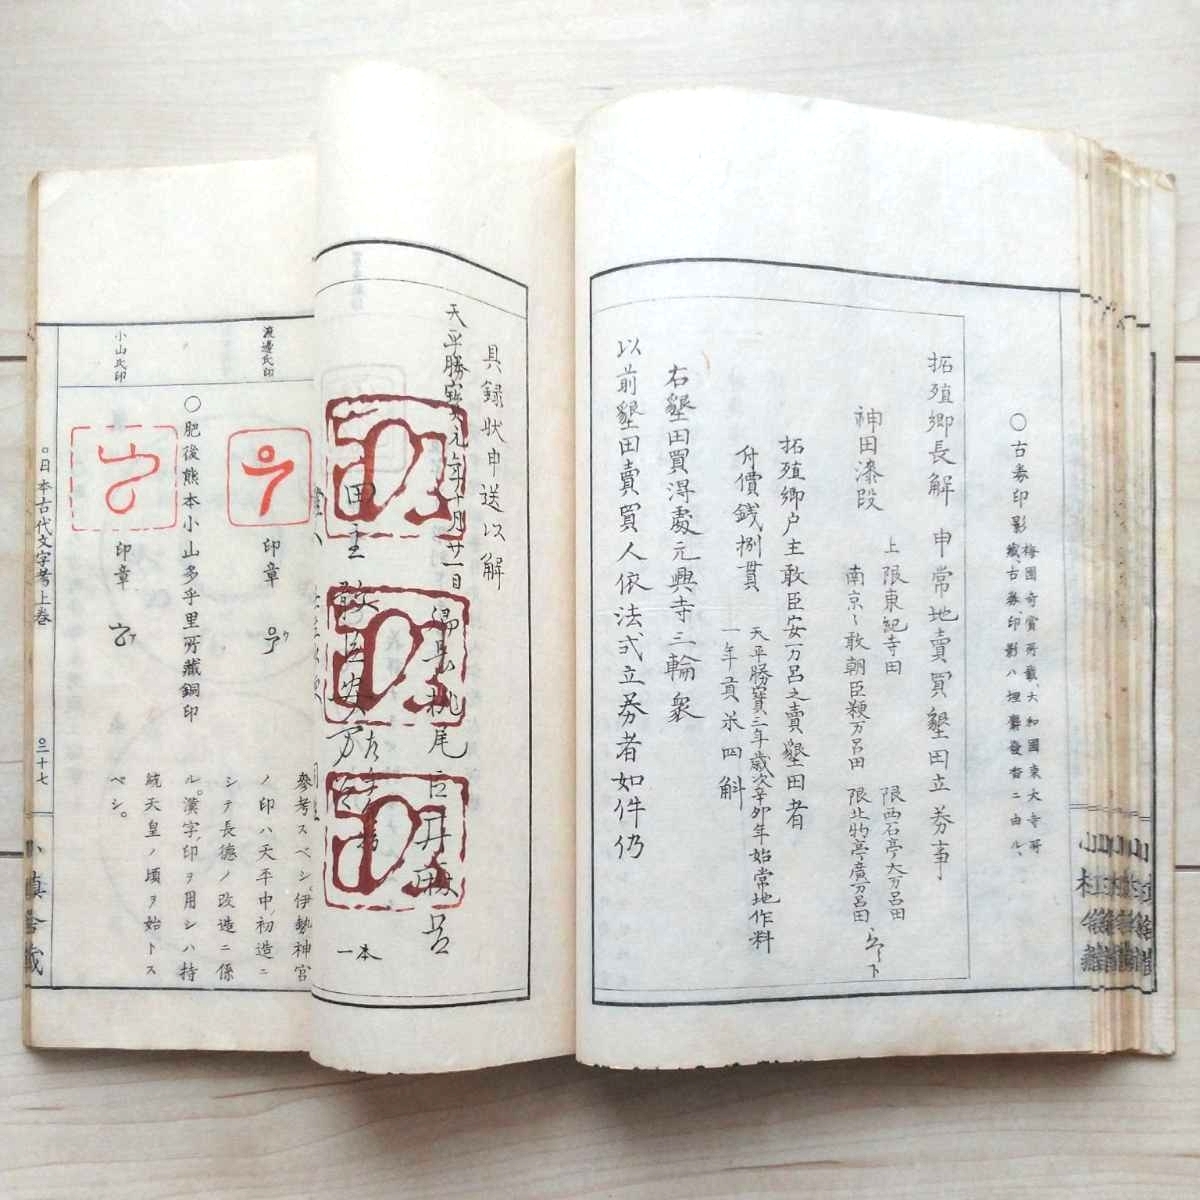 ○古券印影
梅園奇賞所載、大和國東大寺所
藏、古券印影ハ埋麝發香ニ由ル、
拓殖郷長解 申常地賣買墾田立券事
神田漆段
上限東紀寺田
限西石亭大万呂田
南京〻敢朝臣粳万呂田
限北物亭廣万呂田
拓殖郷戸主敢臣安万呂之賣墾田者
天平勝寶三年歳次辛卯年始常地作料
充價銭捌貫
一年貢米四斛
右墾田買得處元興寺三輪衆
以前墾田賣買人依法式立券者如件仍
具録状申送以解
天平勝寶元年十月廿一日
田主
一本
參考スベシ。伊勢神宮
ノ印ハ天平中、初造ニ
シテ長德ノ改造ニ係
ル。漢字印ヲ用シハ持
統天皇ノ頃ヲ始トス
ベシ。
渡邊氏印
印章
ウ
○肥後熊本小山多乎里所藏銅印
小山氏印
印章
○日本古代文字考上巻
○三十七